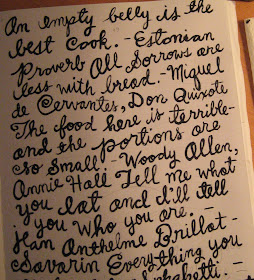 An empty belly is the
best Cook. - Estonian
Proverb All Sorrows are
less with bread. - Miguel
de Cervantes, Don Quixote
The food here is terrible -
and the portions are
so small! - Woody Allen,
Annie Hall Tell me what
you eat and I'll tell
you Who you are. -
Jean Anthelme Brillat -
Savarin Everything you